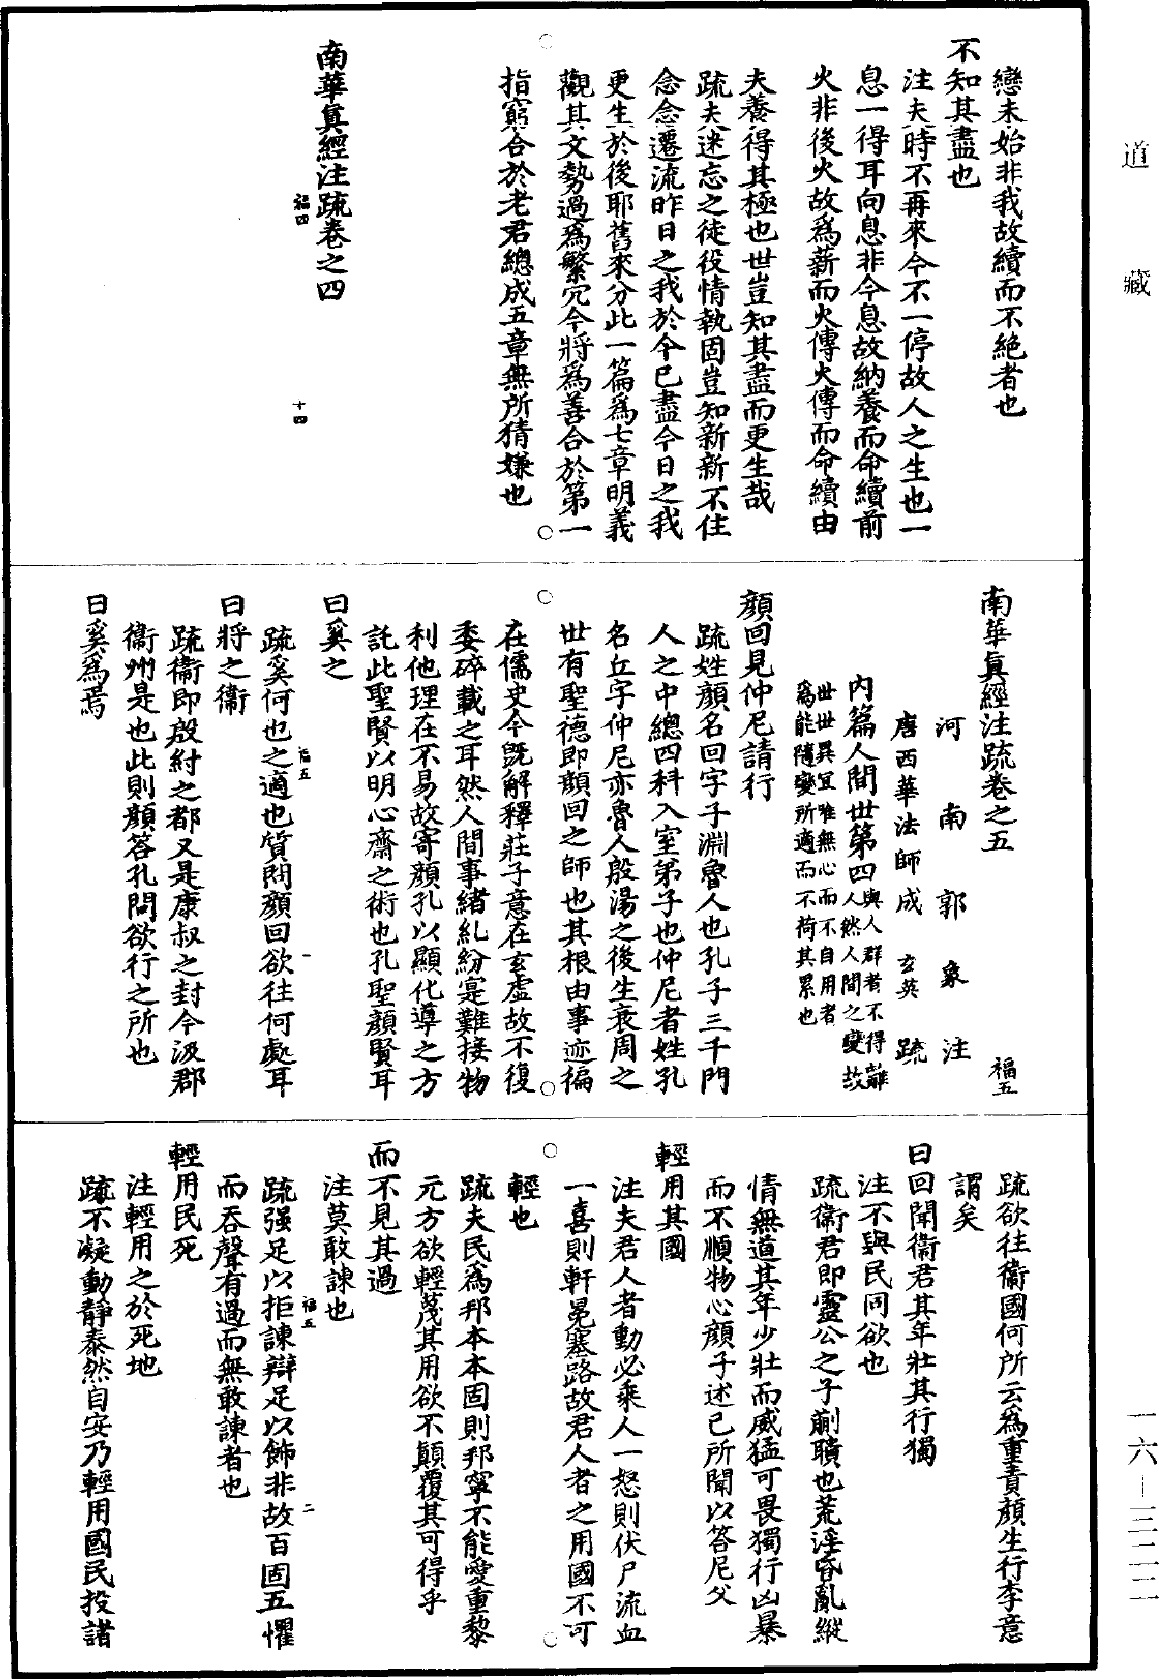 道藏
戀未始非我故續而不絶者也
不知其盡也
注夫時不再來今不一停故人之生也一
息一得耳向息非今息故納養而命續前
火非後火故爲薪而火傳火傳而命續由
夫養得其極也世豈知其盡而更生哉
疏夫迷忘之徒役情執固豈知新新不住
念念遷流昨日之我於今已盡今日之我
更生於後耶舊來分此一篇爲七章明義
觀其文勢過爲繁冗今將爲善合於第一
指窮合於老君總成五章無所猜嫌也
南華真經注疏卷之四
福四
十四
南華真經注疏卷之五
福五
河南郭象注
唐西華法師成玄英疏
內篇人間世第四與人羣者不得離人然人間之變故
世世異宜唯無心而不自用者
爲能隨變所適而不荷其累也
顔回見仲尼請行
疏姓顔名回字子淵魯人也孔子三千門
人之中總四科入室弟子也仲尼者姓孔
名丘字仲尼亦魯人殷湯之後生衰周之
世有聖德即顔回之師也其根由事迹徧
在儒史今既解釋莊子意在玄虛故不復
委碎載之耳然人間事緒糺紛寔難接物
利他理在不易故寄顔孔以顯化導之方
託此聖賢以明心齋之術也孔聖顔賢耳
曰奚之
疏奚何也之適也質問顔回欲往何處耳
福五
一
曰將之衞
疏衞即殷紂之都又是康叔之封今汲郡
衞州是也此則顔答孔問欲行之所也
曰奚爲焉
疏欲往衞國何所云爲重責顔生行李意
謂矣
曰回聞衞君其年壯其行獨
注不與民同欲也
疏衞君即靈公之子蒯聵也荒淫昏亂縱
情無道其年少壯而威猛可畏獨行凶暴
而不順物心顔子述己所聞以答尼父
輕用其國
注夫君人者動必乘人一怒則伏尸流血
一喜則軒冕塞路故君人者之用國不可
輕也
疏夫民爲邦本本固則邦寧不能愛重黎
元方欲輕蔑其用欲不顛覆其可得乎
而不見其過
注莫敢諫也
福五
二
疏强足以拒諫辯足以飾非故百固五懼
而吞聲有過而無敢諫者也
輕用民死
注輕用之於死地
疏不凝動靜泰然自安乃輕用國民投諸
一六—三二二